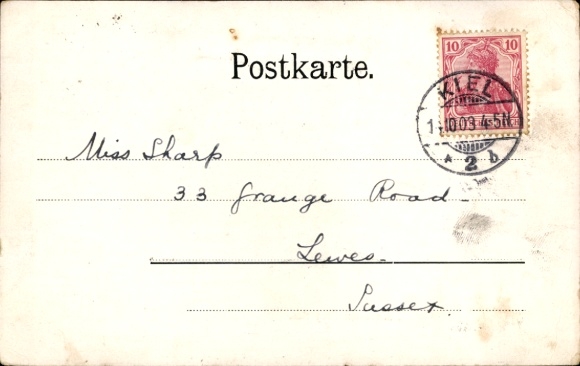 10 10
Postkarte.
KIEL
10.03 4-5N
* 2 b
Miss Sharp
33 Grange Road
Lewes
Sussex.